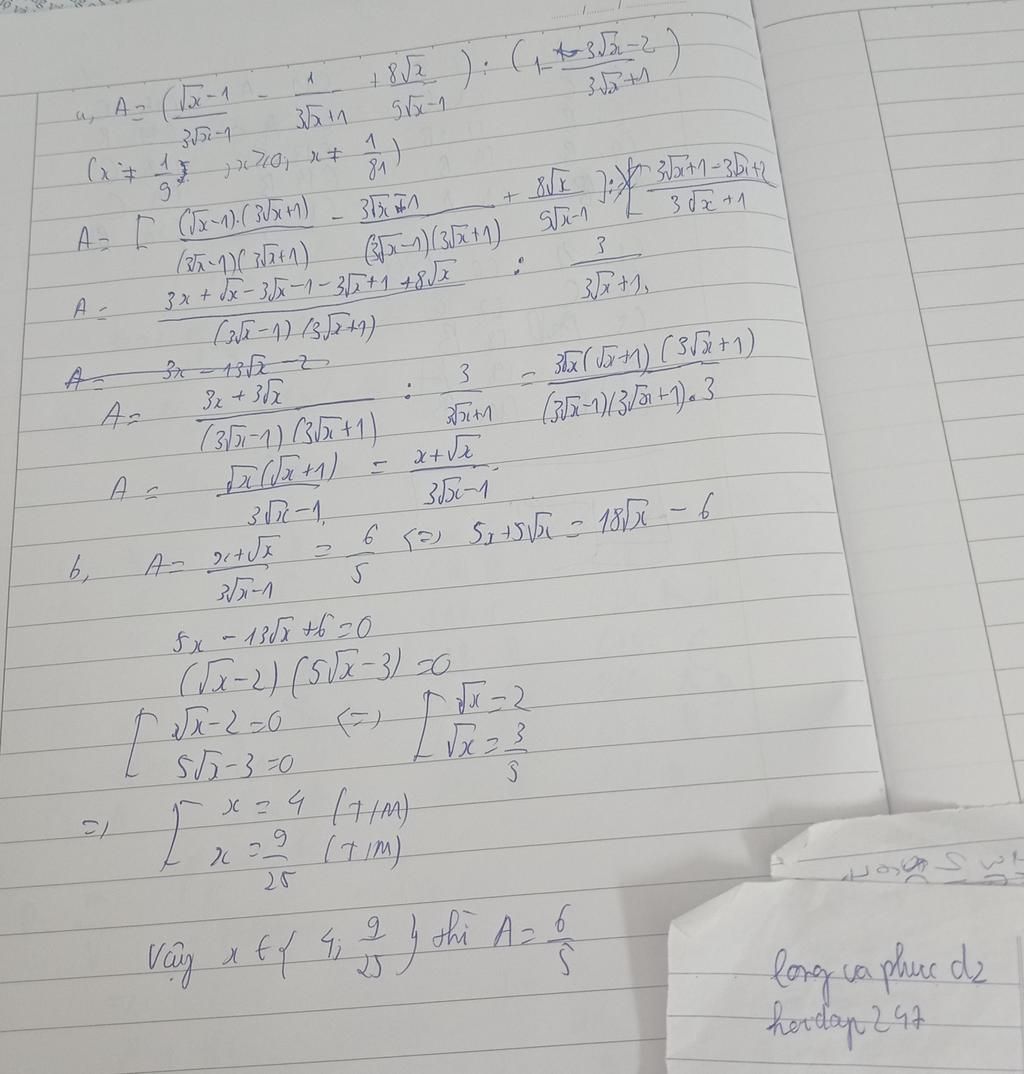 a, A = (√x-1/3√x-1 - 1/3√x+1 + 8√x/9√x-1) : (1 - 3√x-2/3√x+1)
(x ≠ 1/9, x≥0, x ≠ 1/81)
A = [(√x-1).(3√x+1)/(3√x-1)(3√x+1) - 3√x-1/(3√x-1)(3√x+1) + 8√x/9√x-1] : [3√x+1-3√x+2/3√x+1
A = 3x+√x-3√x-1-3√x+1+8√x/(3√x-1)(3√x+1) : 3/3√x+1.
A = 3x-13√x-2
A = 3x+3√x/(3√x-1)(3√x+1) : 3/3√x+1 = 3√x(√x+1)(3√x+1)/(3√x-1)(3√x+1).3
A = √x(√x+1)/3√x-1 = x+√x/3√x-1
b, A = x+√x/3√x-1 = 6/5 <=> 5x+5√x = 18√x - 6
5x - 13√x + 6 = 0
(√x-2)(5√x-3)=0
[ √x-2=0 <=> [ √x=2
5√x-3=0 √x=3/5
=> [ x = 4 (T/M)
x = 9/25 (T/M)
Vậy x ∈ { 4; 9/25 } thì A = 6/5
long va phuc dz
hoidap247